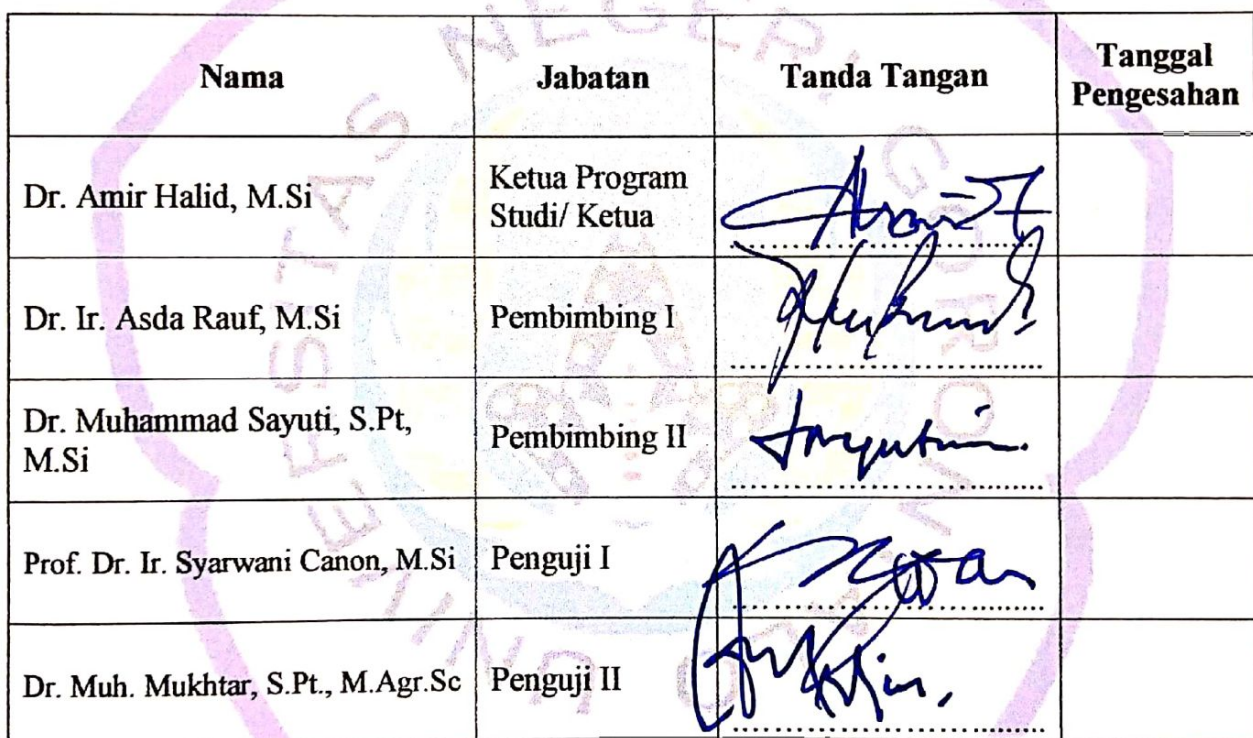 Nama Jabatan Tanda Tangan Tanggal
Pengesahan
Dr. Amir Halid, M.Si Ketua Program
Studi/ Ketua
Dr. Ir. Asda Rauf, M.Si Pembimbing I
Dr. Muhammad Sayuti, S.Pt, Pembimbing II
M.Si
Prof. Dr. Ir. Syarwani Canon, M.Si Penguji I
Dr. Muh. Mukhtar, S.Pt., M.Agr.Sc Penguji II
UNIVERSITAS NEGERI GORONTALO